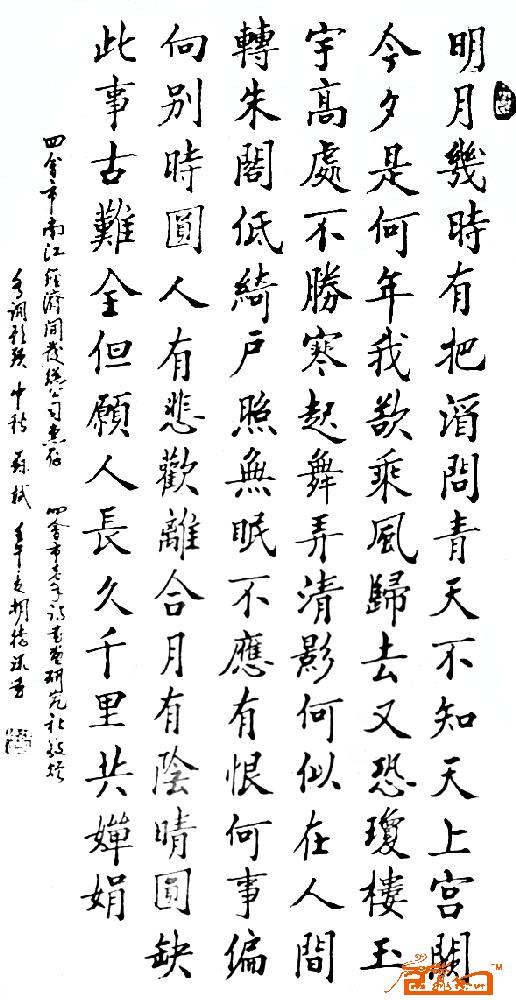 明月幾時有把酒問青天不知天上宮闕
今夕是何年我欲乘風歸去又恐瓊樓玉
宇高處不勝寒起舞弄清影何似在人間
轉朱閣低綺戶照無眠不應有恨何事偏
向別時圓人有悲歡離合月有陰晴圓缺
此事古難全但願人長久千里共嬋娟
四會市南江經濟開發總公司惠存 四會市老年詩書畫研究社敬贈
水調歌頭 中秋 蘇軾 壬午夏